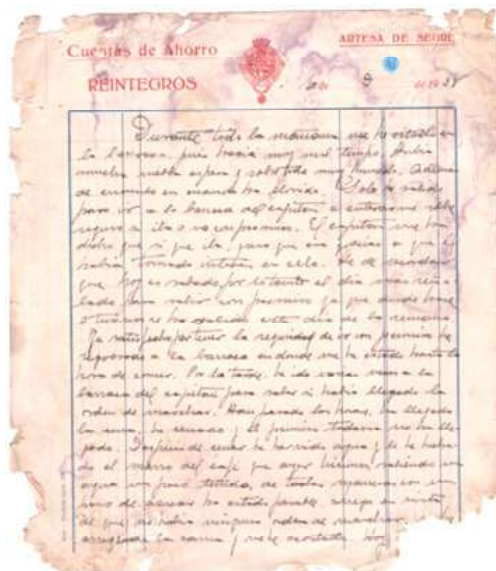 Cuentas de Ahorro
ARTESA DE SEGRE
REINTEGROS
de 9 de 1938
Durante toda la mañana me he estado en
la barraca pues hacia muy mal tiempo,
mucha niebla espesa y sobre todo muy humeda. Ademas
de cuando en cuando ha llovido. Solo he salido
para ir a la barraca del capitan a enterarme si de
seguro iba o no con permiso. El capitan me ha
dicho que si que iba, pero que era gracias a que el
habia tomado interes en ello. He de recordar
que hoy es sabado por lo tanto el dia mas seña
lado para salir con permiso ya que desde hace
se ha salido este dia de la semana
Ya satisfecho por tener la seguridad de ir con permiso he
regresado a la barraca en donde me he estado hasta la
hora de comer. Por la tarde he ido varias veces a la
barraca del capitan para saber si habia llegado la
orden de marchar. Han pasado las horas, ha llegado
la cena, he cenado y el permiso todavia no ha lle
gado. Despues de cenar he hervido agua y le he echa
do el marro del cafe que ayer hicimos saliendo un
agua un poco teñida, de todas maneras con un
poco de azucar ha estado pasable. Luego en vista
de que no habia ninguna orden de marchar, me he
arreglado la cama y me he acostado. Hoy